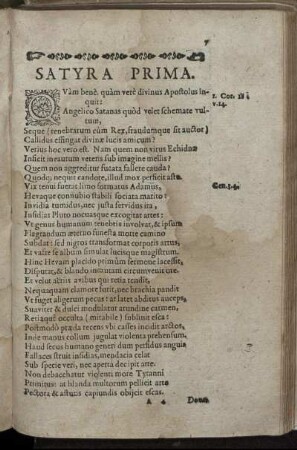 7
SATYRA PRIMA.
QVàm benè, quàm verè divinus Apostolus in-
quit:
Angelico Satanas quòd velet schemate vul-
tum,
2. Cor. 11 à
v. 14.
Seque (tenebrarum cùm Rex, fraudumque sit auctor)
Callidus effingat divinæ lucis amicum?
Verius hoc vero est. Nam quem non virus Echidnæ
Inficit incautum veteris sub imagine mellis?
Quem non aggreditur fucata fallere cauda?
Quodq; nequit candore, illud mox perficit astu.
Vix tenui fuerat limo formatus Adamus,
Gen. 3.4.
Hevaque connubio stabili sociata marito:
Invidia tumidus, nec justa fervidus ira,
Insidias Pluto nocuasque excogitat artes:
Ut genus humanum tenebris involvat, & ipsum
Flagrandum æterno funesta morte camino
Subdat: sed nigros transformat corporis artus,
Et vafer se album simulat lucisque magistrum.
Hinc Hevam placido primùm sermone lacessit,
Disputat, & blando incautam circumvenit ore.
Et velut altivis avibus qui retia tendit,
Nequaquam clamore furit, nec brachia pandit
Ut fuget aligerum pecus: at latet abditus auceps,
Suaviter & dulci modulatur arundine carmen,
Retiaque occulta (mirabile) sublinit esca:
Postmodò præda recens ubi casses incidit arctos,
Inde manus collum jugulat violenta prehensum.
Haud secus humano generi dum perfidus anguis
Fallaces struit insidias, mendacia celat
Sub specie veri, nec aperta decipit arte.
Non debacchatur violenti more Tyranni
Primitus: at blanda multorum pellicit arte
Pectora & astutis capiundis objicit escas.
A 4
Donec